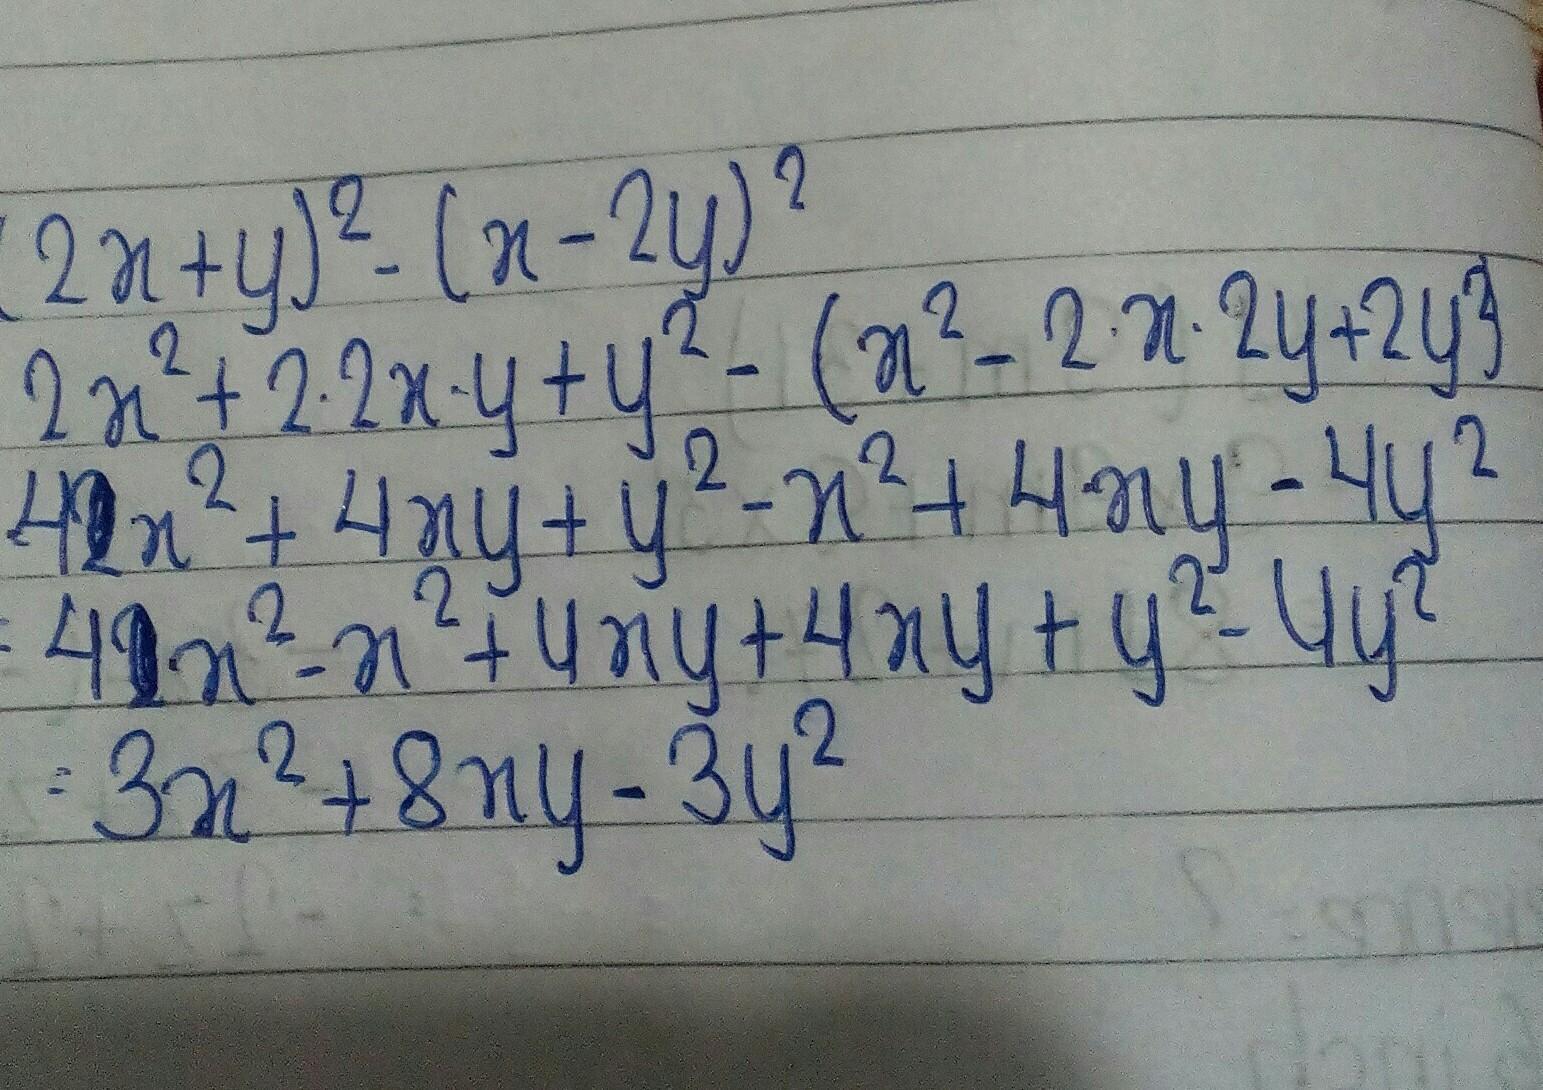 (2x+y)² - (x-2y)²
2x² + 2·2x·y + y² - (x² - 2·x·2y+2y²)
4x² + 4xy + y² - x² + 4xy - 4y²
= 4x² - x² + 4xy + 4xy + y² - 4y²
= 3x² + 8xy - 3y²